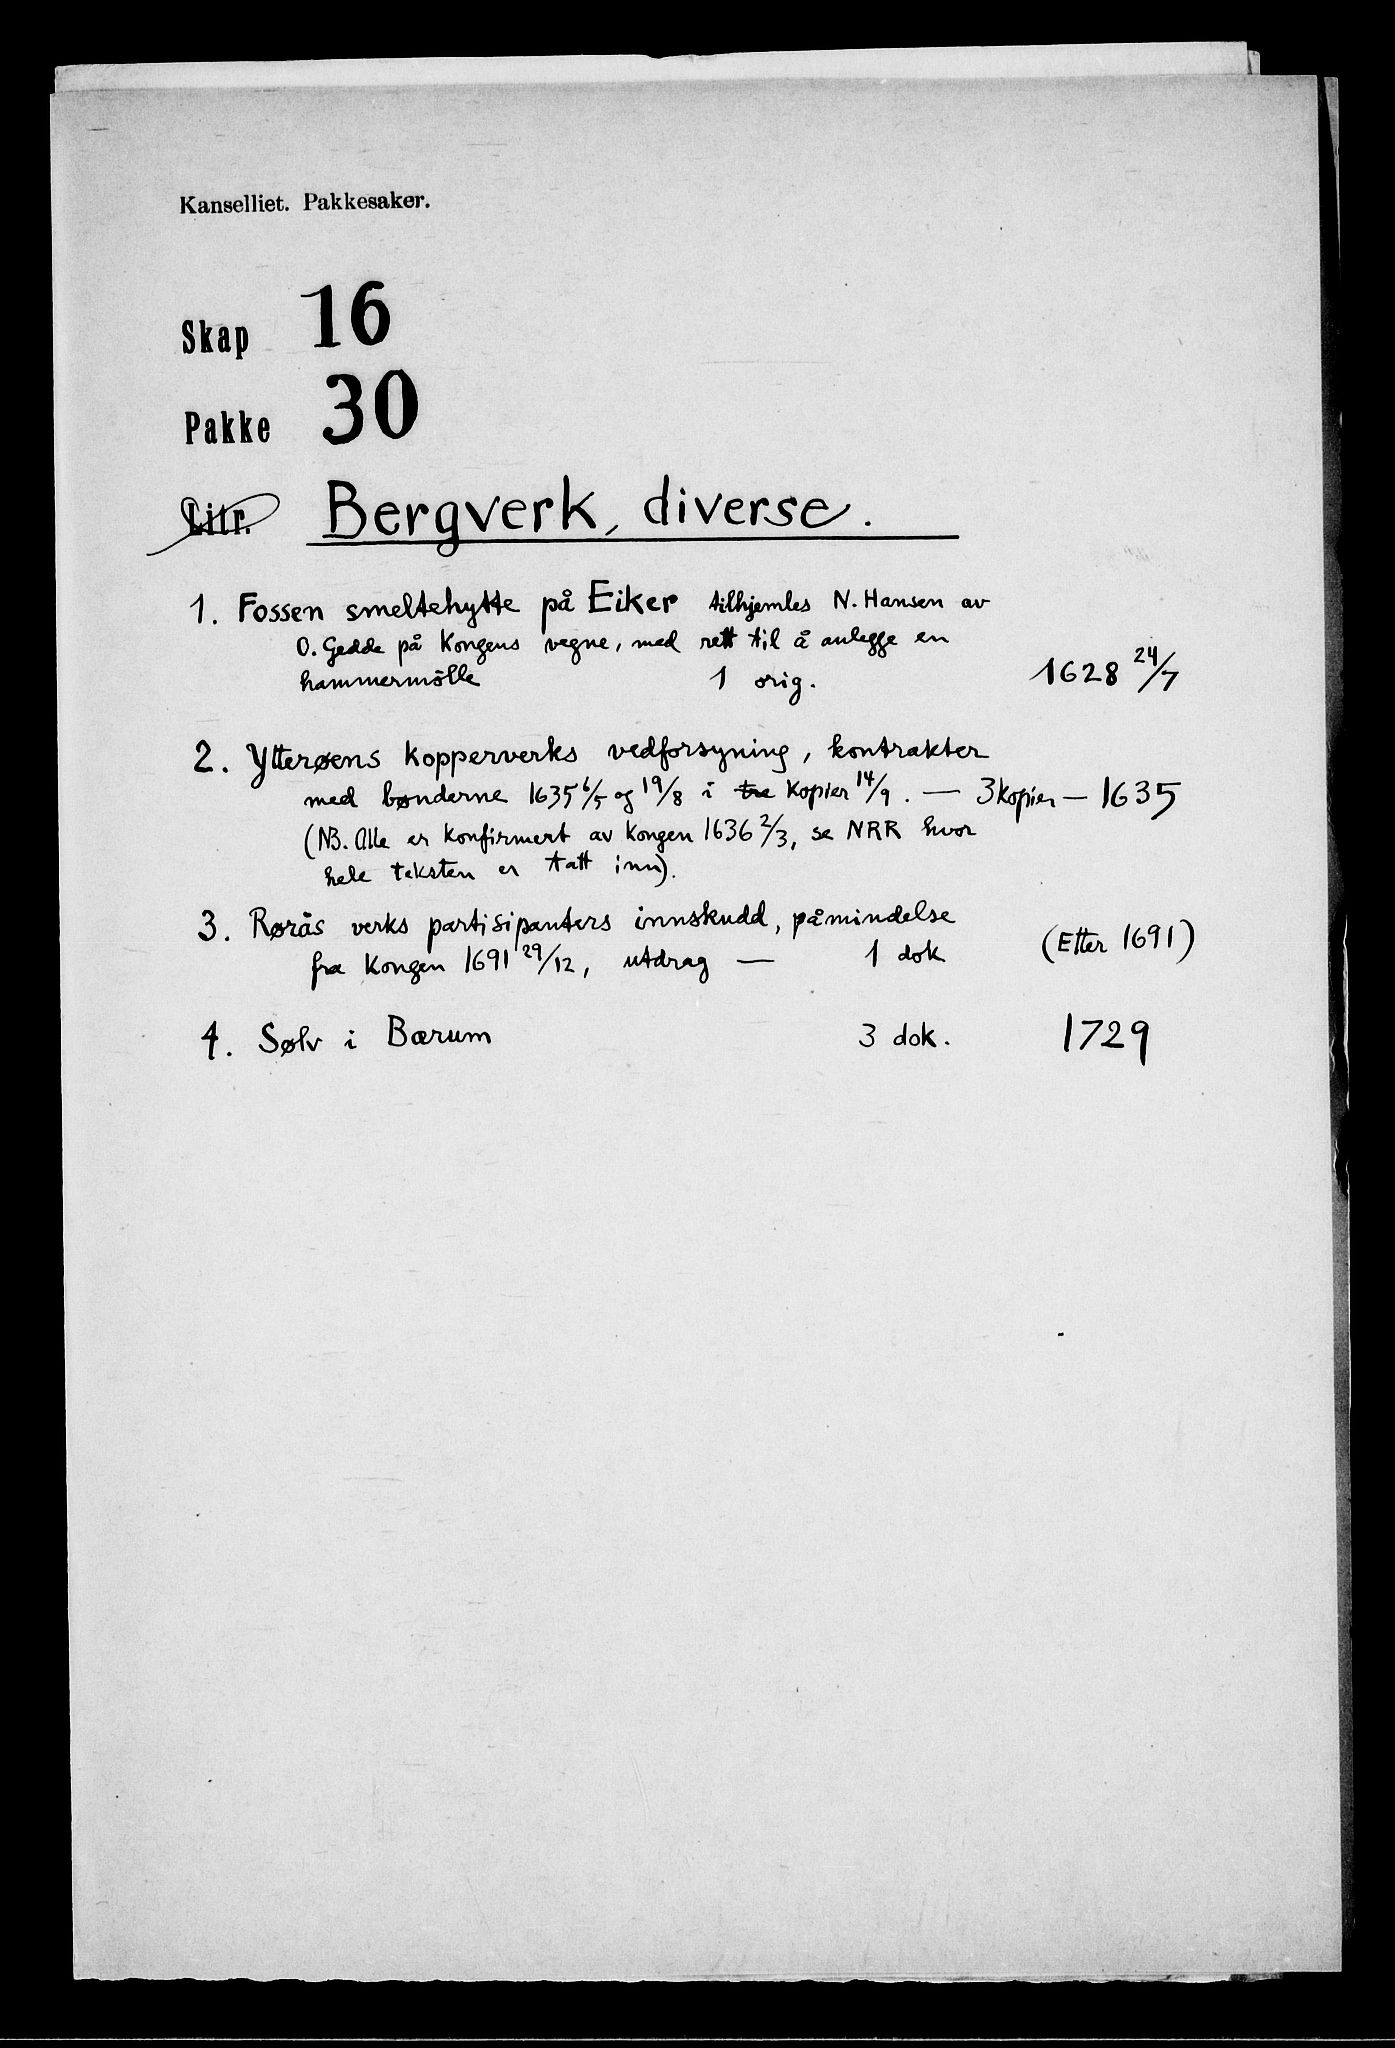 Kanselliet. Pakkesaker.
Skap 16
Pakke 30
Litr. Bergverk, diverse.
1. Fossen smeltehytte på Eiker tilhjemles N. Hansen av
O. Gedde på Kongens vegne, med rett til å anlegge en
hammermölle 1 orig. 1628 24/7
2. Ytterøens Kopperverks vedforsyning, kontrakter
med bønderne 1635 6/5 og 19/8 i tre Kopier 14/9. — 3 kopier — 1635
(NB. Alle er konfirmert av Kongen 1636 2/3, se NRR hvor
hele teksten er tatt inn).
3. Rørås verks partisipanters innskudd, påmindelse
fra Kongen 1691 29/12, utdrag — 1 dok (Etter 1691)
4. Sølv i Bærum 3 dok. 1729